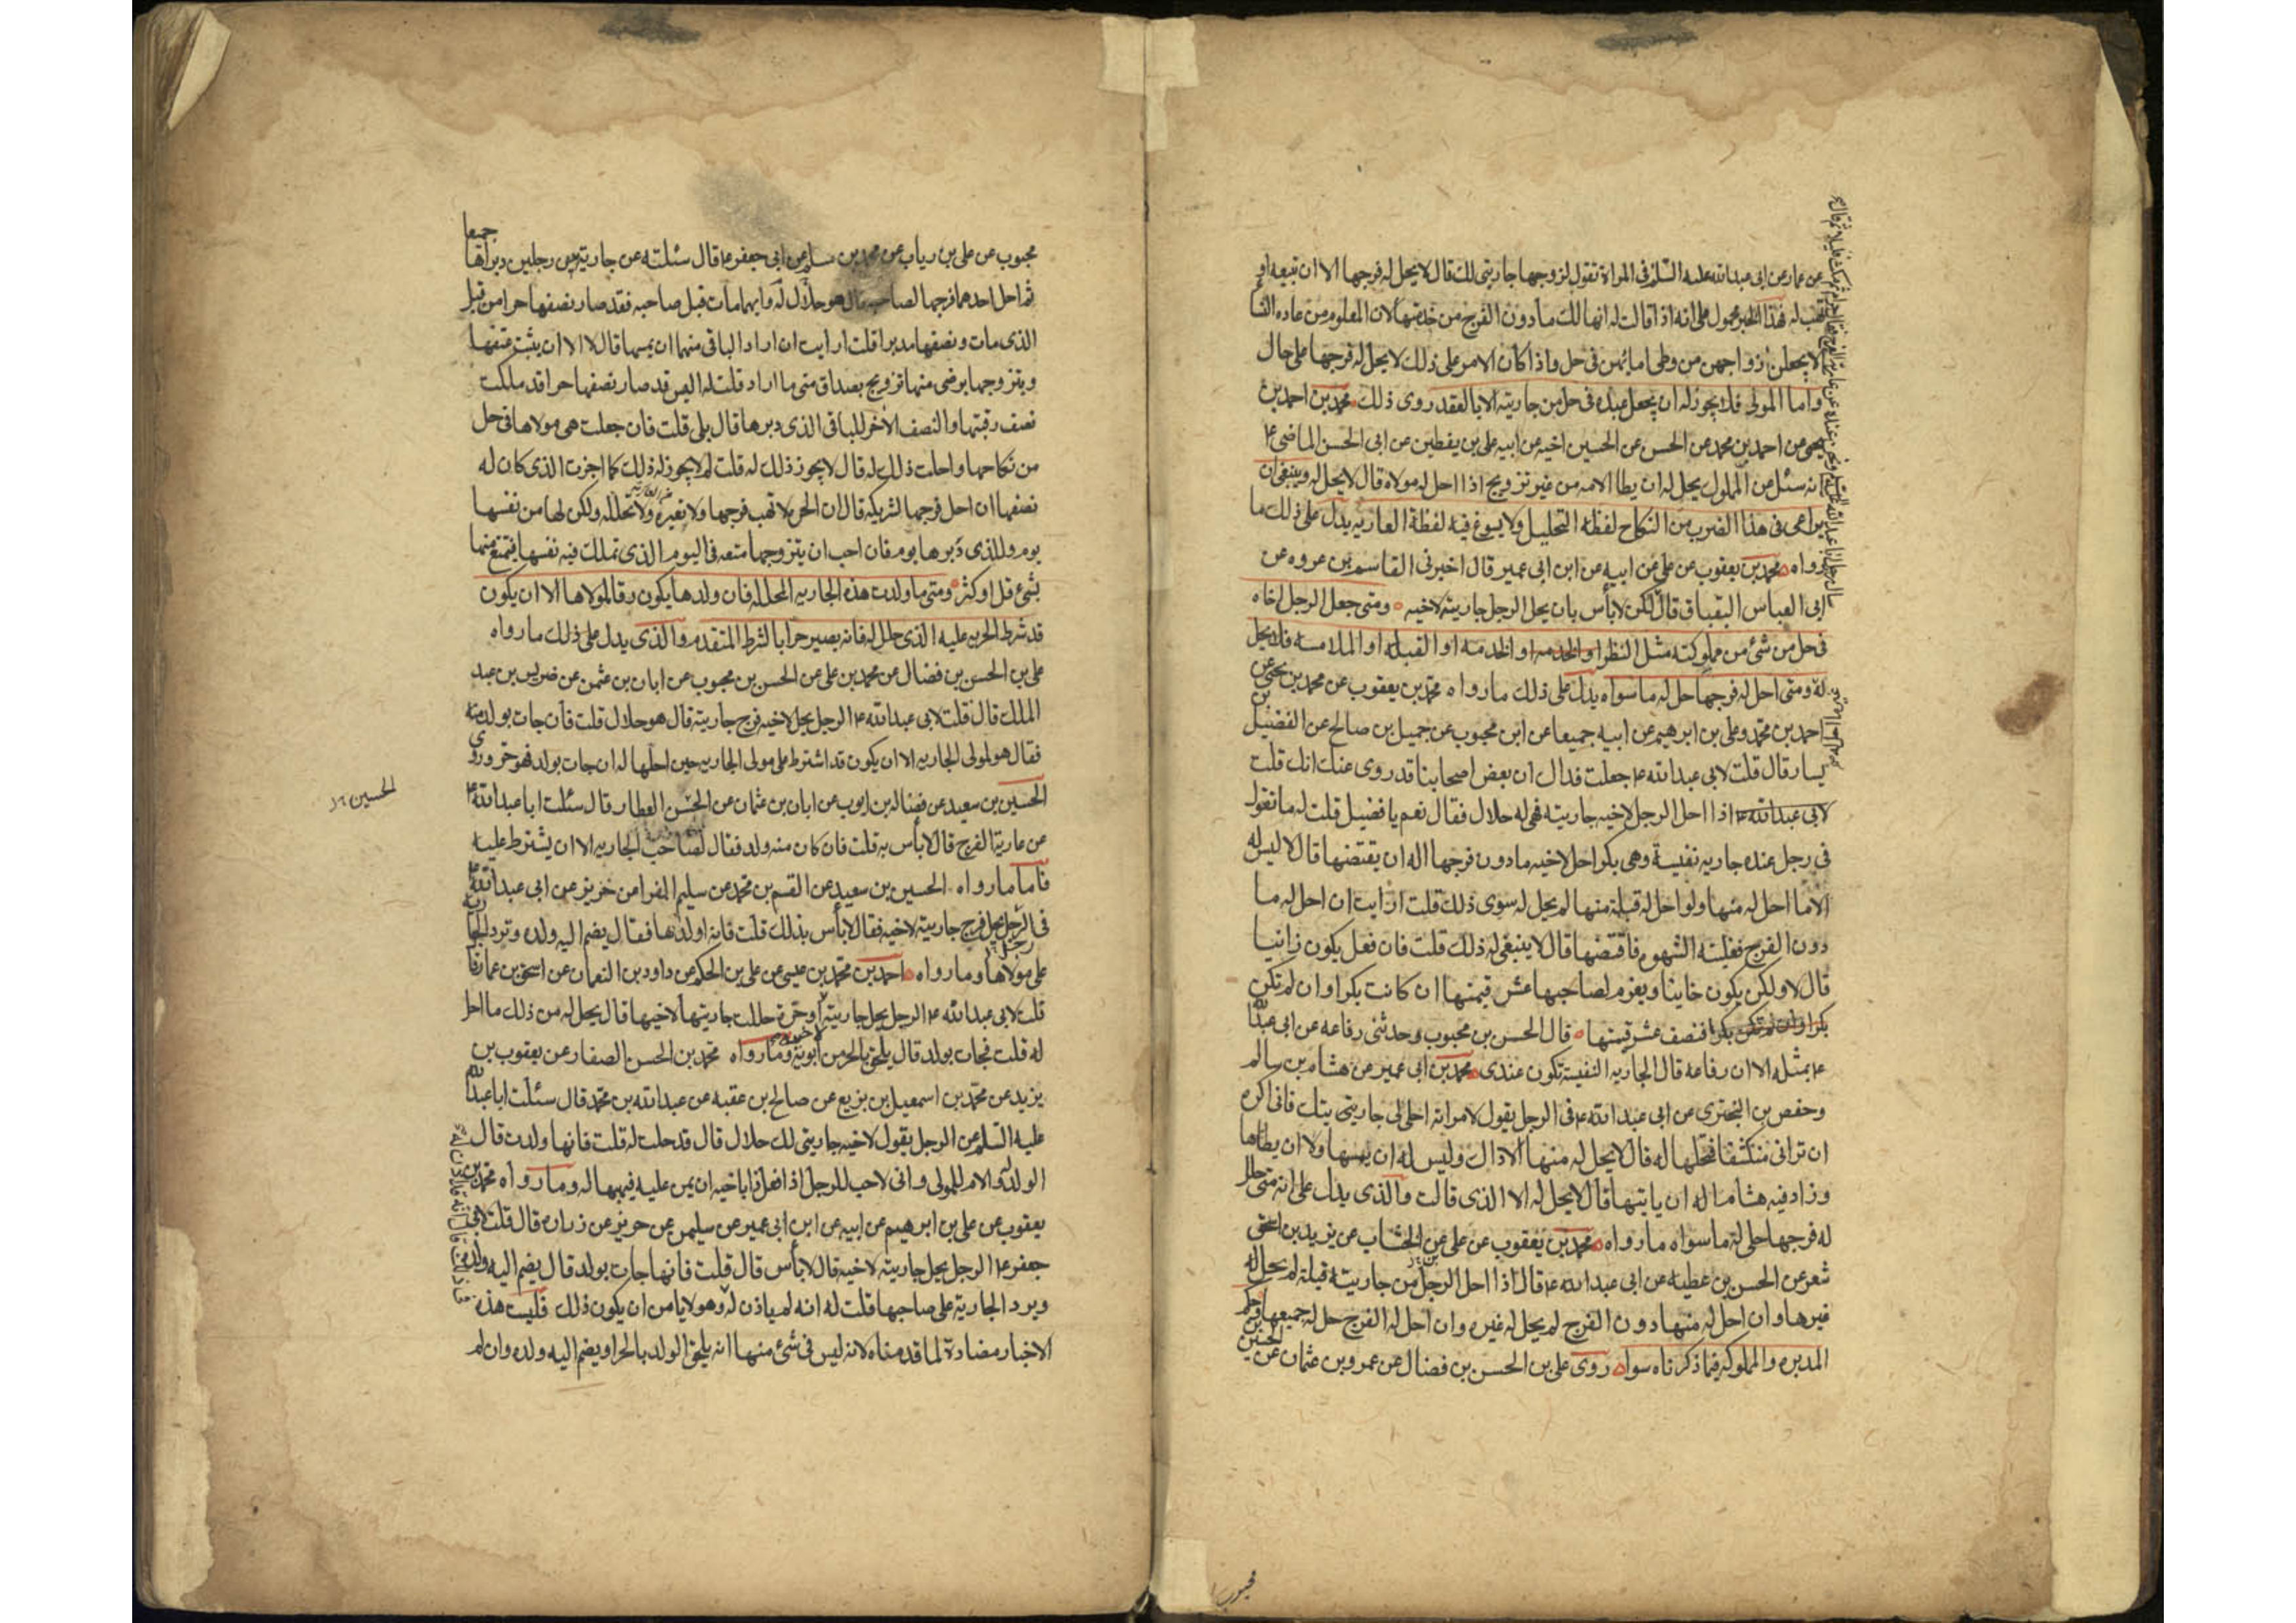 عن عمار عن ابى عبدالله عليه السلم فى المراة تقول لزوجها جاريتى لك قال لا يحل له فرجها الا ان تبيعه او
تهب له فهذا الخبر محمول على انه اذا قالت له انها لك مادون الفرج من خدمتها لان المعلوم من عاده النسا
الا يجعلن ازواجهن من وطى امائهن فى حل واذا كان الامر على ذلك لا يحل له فرجها على حال
واما المولى فلا يجوز له ان يجعل عبده فى حل من جاريته الا بالعقد روى ذلك محمد بن احمد بن
يحيى عن احمد بن محمد عن الحسن عن الحسين اخيه عن ابيه على بن يقطين عن ابى الحسن الماضى ع
انه سئل عن المملوك يحل له ان يطا الامه من غير تزويج اذا احل له مولاه قال لا يحل له وينبغى ان
يراعى فى هذا الضرب من النكاح لفظه التحليل ولا يسوغ فيه لفظة العاريه يدل على ذلك ما
رواه محمد بن يعقوب عن على عن ابيه عن ابن ابى عمير قال اخبرنى القاسم بن عروه عن
ابى العباس البقباق قال
لكن لا بأس بان يحل الرجل جاريته لاخيه ومتى جعل الرجل اخاه
فى حل من شئ من مملوكته مثل النظر او الخدمه او الخدمه او القبله او الملامسه فلا يحل
له ومتى احل له فرجها حل له ما سواه يدل على ذلك ما رواه محمد بن يعقوب عن محمد بن يحيى عن
احمد بن محمد وعلى بن ابرهيم عن ابيه جميعا عن ابن محبوب عن جميل بن صالح عن الفضيل بن
يسار قال قلت لابى عبدالله ع جعلت فداك ان بعض اصحابنا قد روى عنك انك قلت
لابى عبدالله ع اذا احل الرجل لاخيه جاريته فهى له حلال فقال نعم يا فضيل قلت له ما تقول
فى رجل عنده جاريه نفيسة وهى بكر احل لاخيه مادون فرجها اله ان يقتضها قال لا ليس له
الا ما احل له منها ولو احل له قبلة منها لم يحل له سوى ذلك قلت ارايت ان احل له ما
دون الفرج فغلبته الشهوه فاقتضها قال لا ينبغى له ذلك قلت فان فعل يكون زانيا
قال لا ولكن يكون خاينا ويغرم لصاحبها عشر قيمتها ان كانت بكرا وان لم تكن
بكرا وان لم تكن بكرا فنصف عشر قيمتها قال الحسن بن محبوب وحدثنى رفاعه عن ابى عبدالله
ع بمثله الا ان رفاعه قال الجاريه النفيسة تكون عندى محمد بن ابى عمير عن هشام بن سالم
وحفص بن البخترى عن ابى عبدالله ع فى الرجل يقول لامراته احلى لى جاريتى يتك فانى اكره
ان ترانى منكشفا فتحلها له قال لا يحل له منها الا ذاك وليس له ان يمسها ولا ان يطاها
وزاد فيه هشام اله ان ياتيها قال لا يحل له الا الذى قالت والذى يدل على انه متى حلل
له فرجها حلى له ما سواه ما رواه محمد بن يعقوب عن على عن الخشاب عن يزيد بن اسحق
شعر عن الحسن بن عطيه عن ابى عبدالله ع قال اذا احل الرجل من جاريته قبلة لم يحل له
غيرها وان احل له منها دون الفرج لم يحل له غيره وان احل له الفرج حل له جميعها وحكم
المدبره والمملوكه فيما ذكرناه سواء روى على بن الحسن بن فضال عن عمرو بن عثمان عن الحسن بن
محبوب
محبوب عن على بن رياب عن محمد بن مسلم عن ابى جعفر ع قال سئلته عن جاريه بين رجلين دبراها جميعا
ثم احل احدهما فرجها لصاحبه قال هو حلال له وايهما مات قبل صاحبه فقد صار نصفها حرا من قبل
الذى مات ونصفها مدبرا قلت ارايت ان اراد الباقى منهما ان يمسها قال لا الا ان يثبت عتقها
ويتزوجها برضى منها تزويج بصداق متى ما اراد قلت له اليس قد صار نصفها حرا قد ملكت
نصف رقبتها والنصف الاخر للباقى الذى دبرها قال بلى قلت فان جعلت هى مولاها فى حل
من نكاحها واحلت ذلك له قال لا يجوز ذلك له قلت لم لا يجوز له ذلك كما اجزت الذى كان له
نصفها ان احل فرجها لشريكه قال ان الحره لا تهب فرجها ولا تعيره ولا تحلله ولكن لها من نفسها
يوم وللذى دبرها يوم فان احب ان يتزوجها متعه فى اليوم الذى تملك فيه نفسها فيتمتع منها
بشئ قل او كثر ومتى ما ولدت هذه الجاريه المحلله فان ولدها يكون رقا لمولاها الا ان يكون
قد شرط الحريه عليه الذى حلل له فانه يصير حرا بالشرط المتقدم والذى يدل على ذلك ما رواه
على بن الحسن بن فضال عن محمد بن على عن الحسن بن محبوب عن ابان بن عثمن عن ضريس بن عبد
الملك قال قلت لابى عبدالله ع الرجل يحل لاخيه فرج جاريته قال هو حلال قلت فان جات بولد منه
فقال هو لمولى الجاريه الا ان يكون قد اشترط على مولى الجاريه حين احلها له ان جات بولد فهو حر وروى
الحسين بن سعيد عن فضاله بن ايوب عن ابان بن عثمان عن الحسن العطار قال سئلت ابا عبدالله ع
الحسين
عن عارية الفرج قال لا بأس به قلت فان كان منه ولد فقال لصاحب الجاريه الا ان يشترط عليه
فاما ما رواه الحسين بن سعيد عن القسم بن محمد عن سليم الفرا عن حريز عن ابى عبدالله ع
فى الرجل يحل فرج جاريته لاخيه فقال لا بأس بذلك قلت فانه اولدها فقال يضم اليه ولده وترد الجاريه
على مولاها وما رواه احمد بن محمد بن عيسى عن على بن الحكم عن داود بن النعمان عن اسحق بن عمار قال
قلت لابى عبدالله ع الرجل يحل جاريته او حرة حللت جاريتها لاخيها قال يحل له من ذلك ما احل
له قلت فجات بولد قال يلحق بالحر من ابويه وما رواه محمد بن الحسن الصفار عن يعقوب بن
يزيد عن محمد بن اسمعيل بن بزيع عن صالح بن عقبه عن عبدالله بن محمد قال سئلت ابا عبدالله
عليه السلم عن الرجل يقول لاخيه جاريتى لك حلال قال قد حلت له قلت فانها ولدت قال
الولد له والام للمولى وانى لاحب للرجل اذا فعل ذا باخيه ان يمن عليه فيهبها له وما رواه محمد بن
يعقوب عن على بن ابرهيم عن ابيه عن ابن ابى عمير عن سليمن عن حريز عن زراره قال قلت لابى
جعفر ع الرجل يحل جاريته لاخيه قال لا بأس قال قلت فانها جات بولد قال يضم اليه ولده
ويرد الجارية على صاحبها قلت له انه لم ياذن له وهو لا يامن ان يكون ذلك فليست هذه
الاخبار مضادة لما قدمناه لانه ليس فى شئ منها انه يلحق الولد بالحر او يضم اليه ولده وان لم